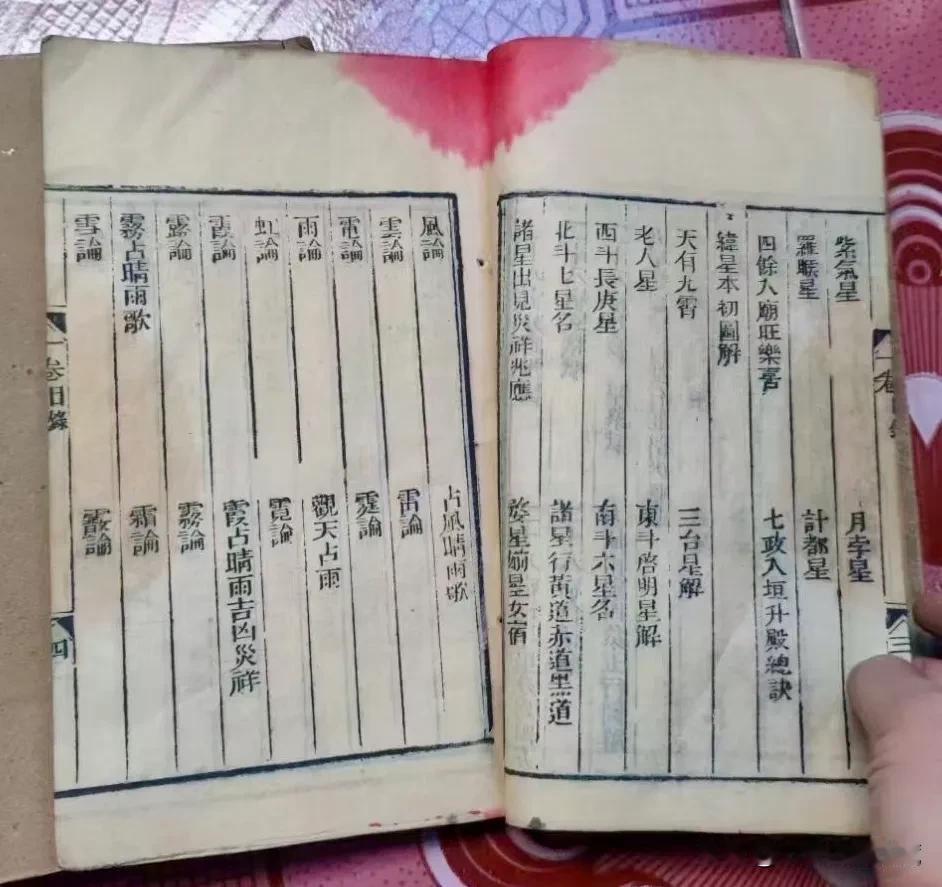 紫氣星　月孛星
羅睺星　計都星
四餘入廟旺樂喜　七政入垣升殿總訣
緯星本初圖解
天有九霄　三台星解
老人星　東斗啓明星解
西斗長庚星　南斗六星名
北斗七星名　諸星行黃道赤道黑道
諸星出見災祥兆應　婺星
一卷目錄
三
風論　占風晴雨歌
雲論　雷論
電論　霆論
雨論　觀天占雨
虹論　霓論
霞論　霞占晴雨吉凶災祥
露論　霧論
霧占晴雨歌　霜論
雪論　霰論
一卷目錄
四